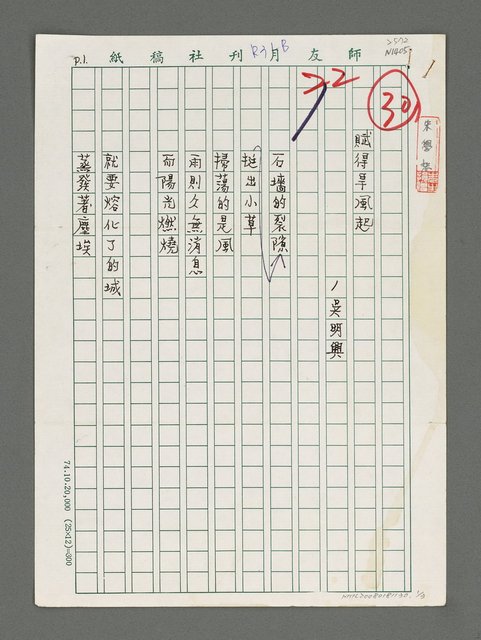 師友月刊社稿紙
P.1.
22
30
賦得旱風起
／吳明興
石墻的裂隙
挺出小草
掃蕩的是風
雨則久無消息
而陽光燃燒
就要熔化了的城
蒸發著塵埃
74.10.20,000 (25×12)=300